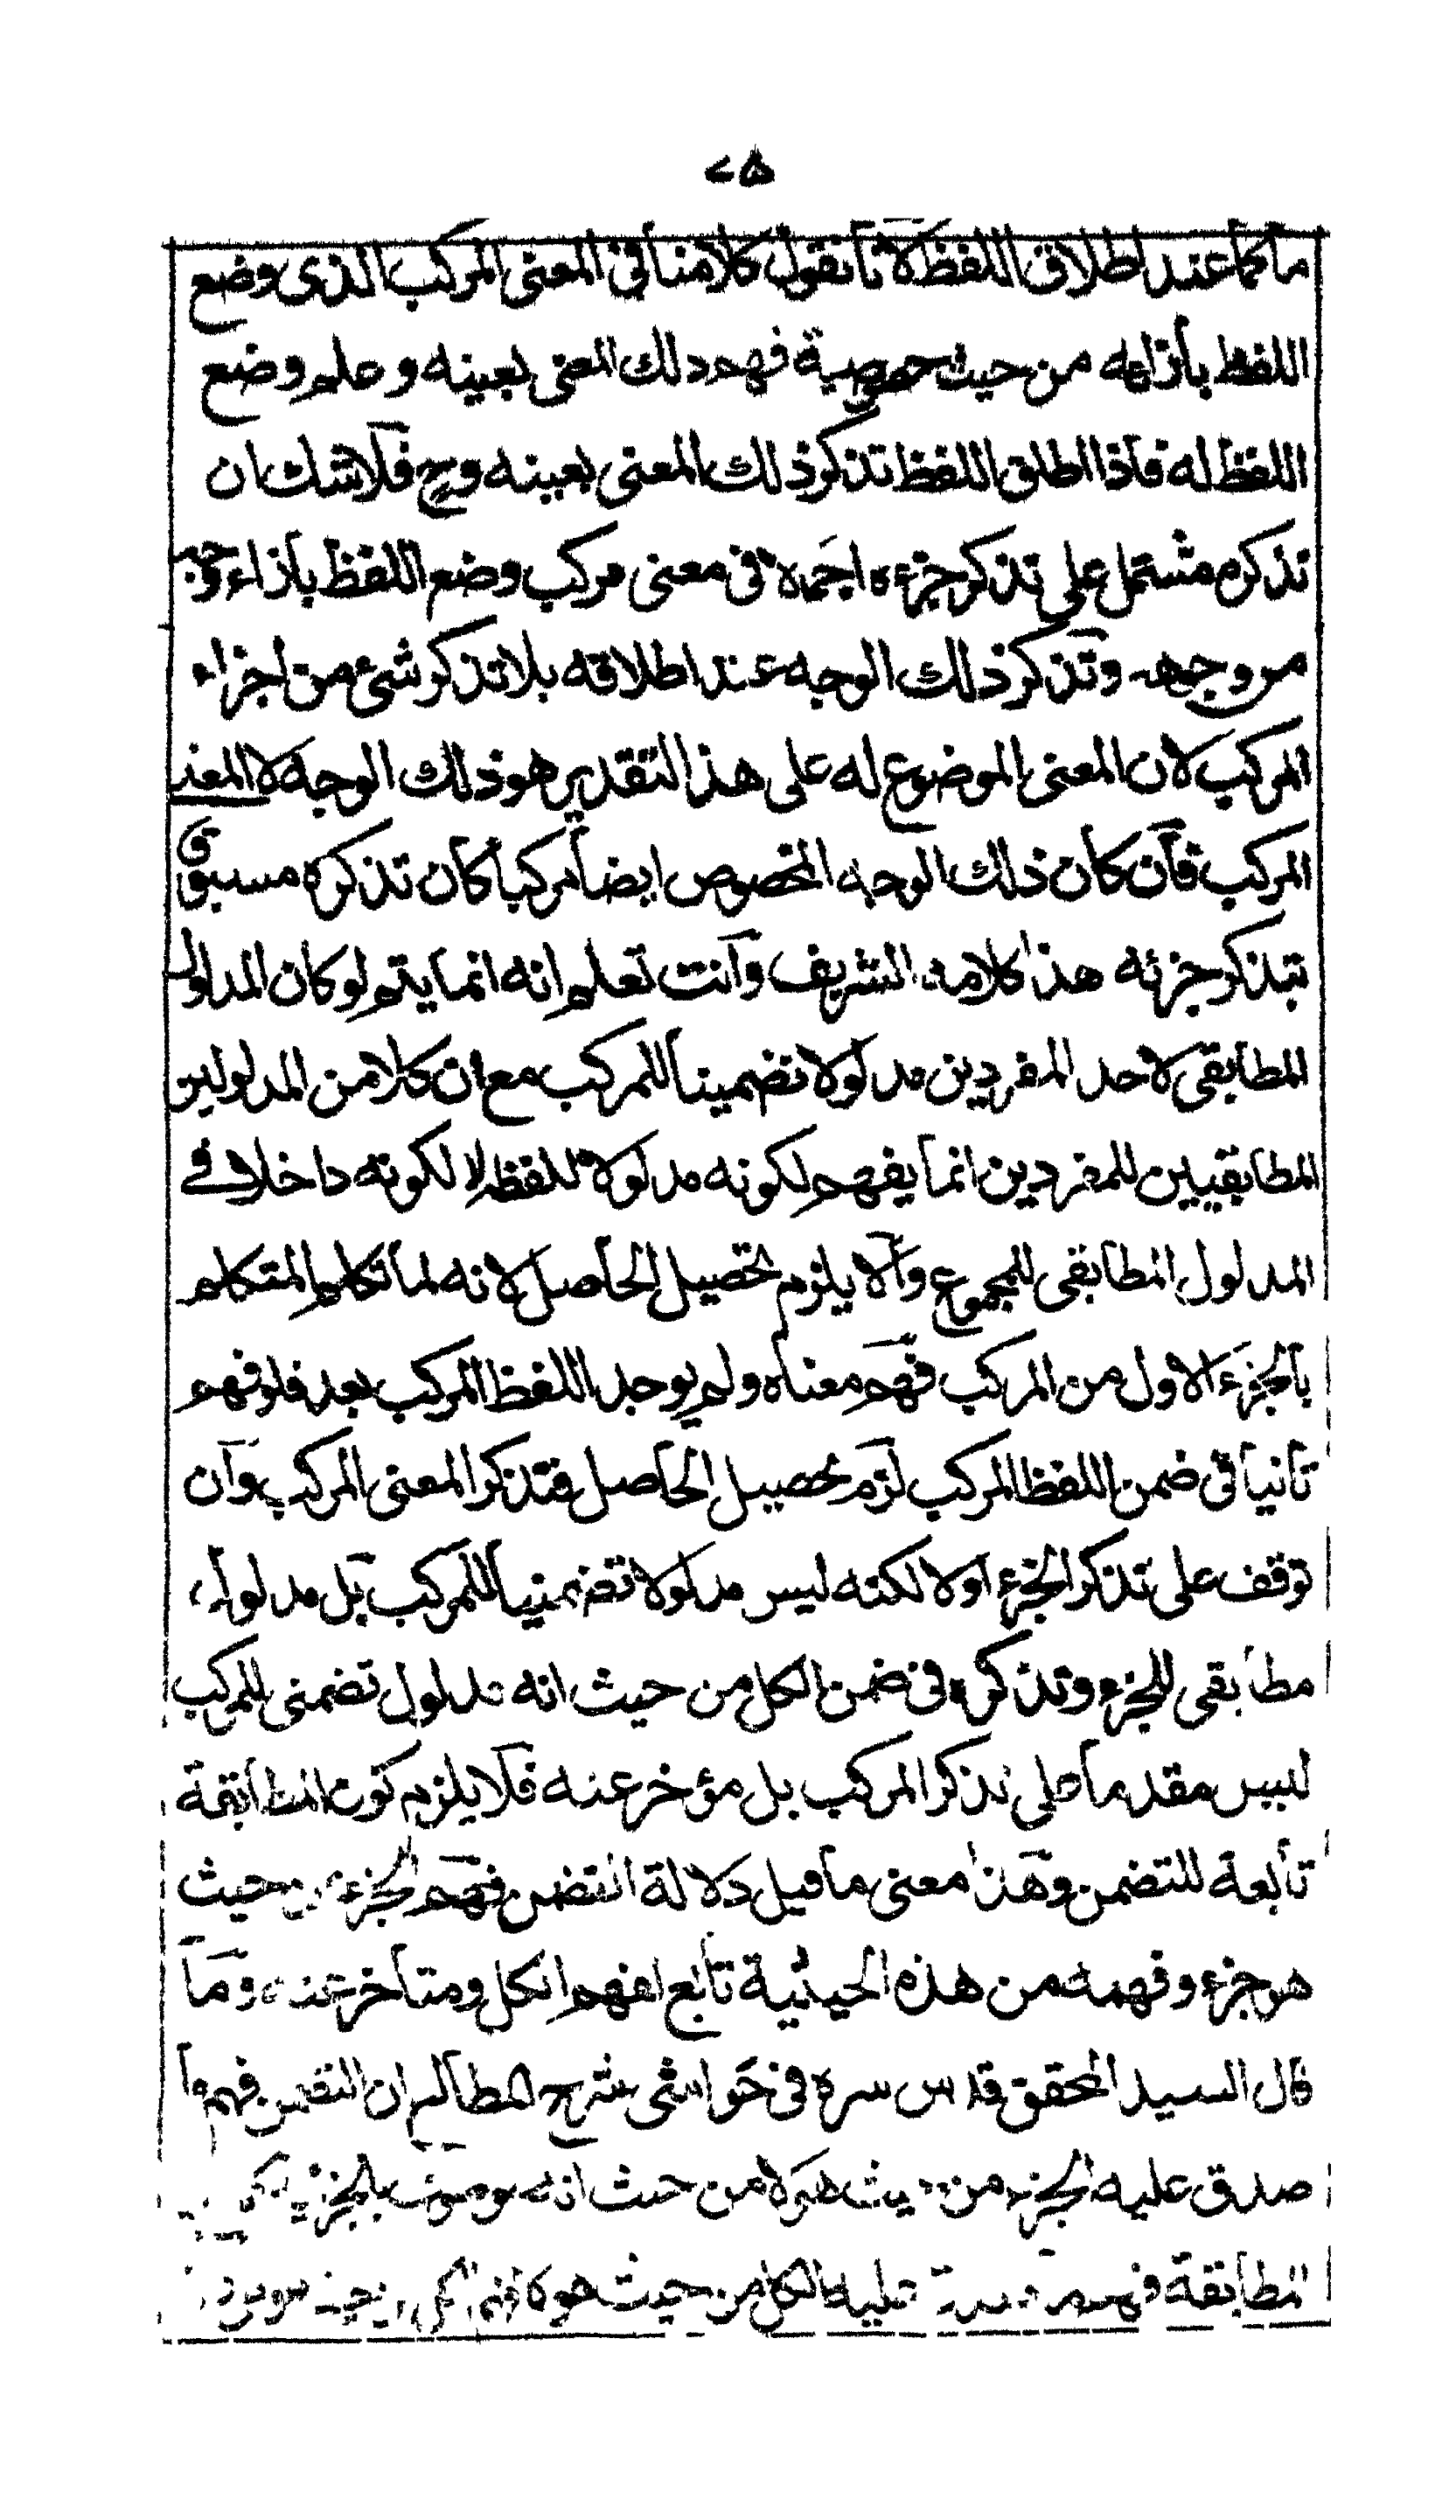 ٢٥
ما كما عند اطلاق اللفظ لانا نقول كلامنا فى المعنى المركب الذى وضع
اللفظ بأزائه من حيث خصوصية فهم ذلك المعنى بعينه وعلم وضع
اللفظ له فاذا اطلق اللفظ تذكر ذلك المعنى بعينه وح فلا شك ان
تذكره مشتمل على تذكر جزءه اجمالا فى معنى مركب وضع اللفظ بأزاء وجه
من وجهه وتذكر ذلك الوجه عند اطلاقه بلا تذكر شىء من اجزاء
المركب لان المعنى الموضوع له على هذا التقدير هو ذلك الوجه لا المعنى
المركب فان كان ذلك الوجه المخصوص ايضا مركبا كان تذكره مسبوقا
بتذكر جزئه هذا كلامه الشريف وانت تعلم انه انما يتم لو كان المدلول
المطابقى لاحد المفردين مدلولا تضمينا للمركب مع ان كلا من المدلولين
المطابقيين للمفردين انما يفهم لكونه مدلولا للفظه لا لكونه داخلا فى
المدلول المطابقى للمجموع والا يلزم تحصيل الحاصل لانه لما تكلم المتكلم
بالجزء الاول من المركب فهم معناه ولم يوجد اللفظ المركب بعد فلو فهم
ثانيا فى ضمن اللفظ المركب لزم تحصيل الحاصل فتذكر المعنى المركب وان
توقف على تذكر الجزء اولا لكنه ليس مدلولا تضمنيا للمركب بل مدلولا
مطابقى للجزء وتذكره فى ضمن الكل من حيث انه مدلول تضمنى للمركب
ليس مقدما على تذكر المركب بل مؤخر عنه فلا يلزم كون المطابقة
تابعة للتضمن وهذا معنى ما قيل دلالة التضمن فهم الجزء من حيث
هو جزء وفهمه من هذه الحيثية تابع لفهم الكل ومتأخر عنه وما
قال السيد المحقق قدس سره فى حواشى شرح المطالع ان التضمن فهم ما
صدق عليه الجزء من حيث هو لا من حيث انه موصوف بالجزئية
المطابقة فهم ما صدق عليه الكل من حيث هو لا من حيث